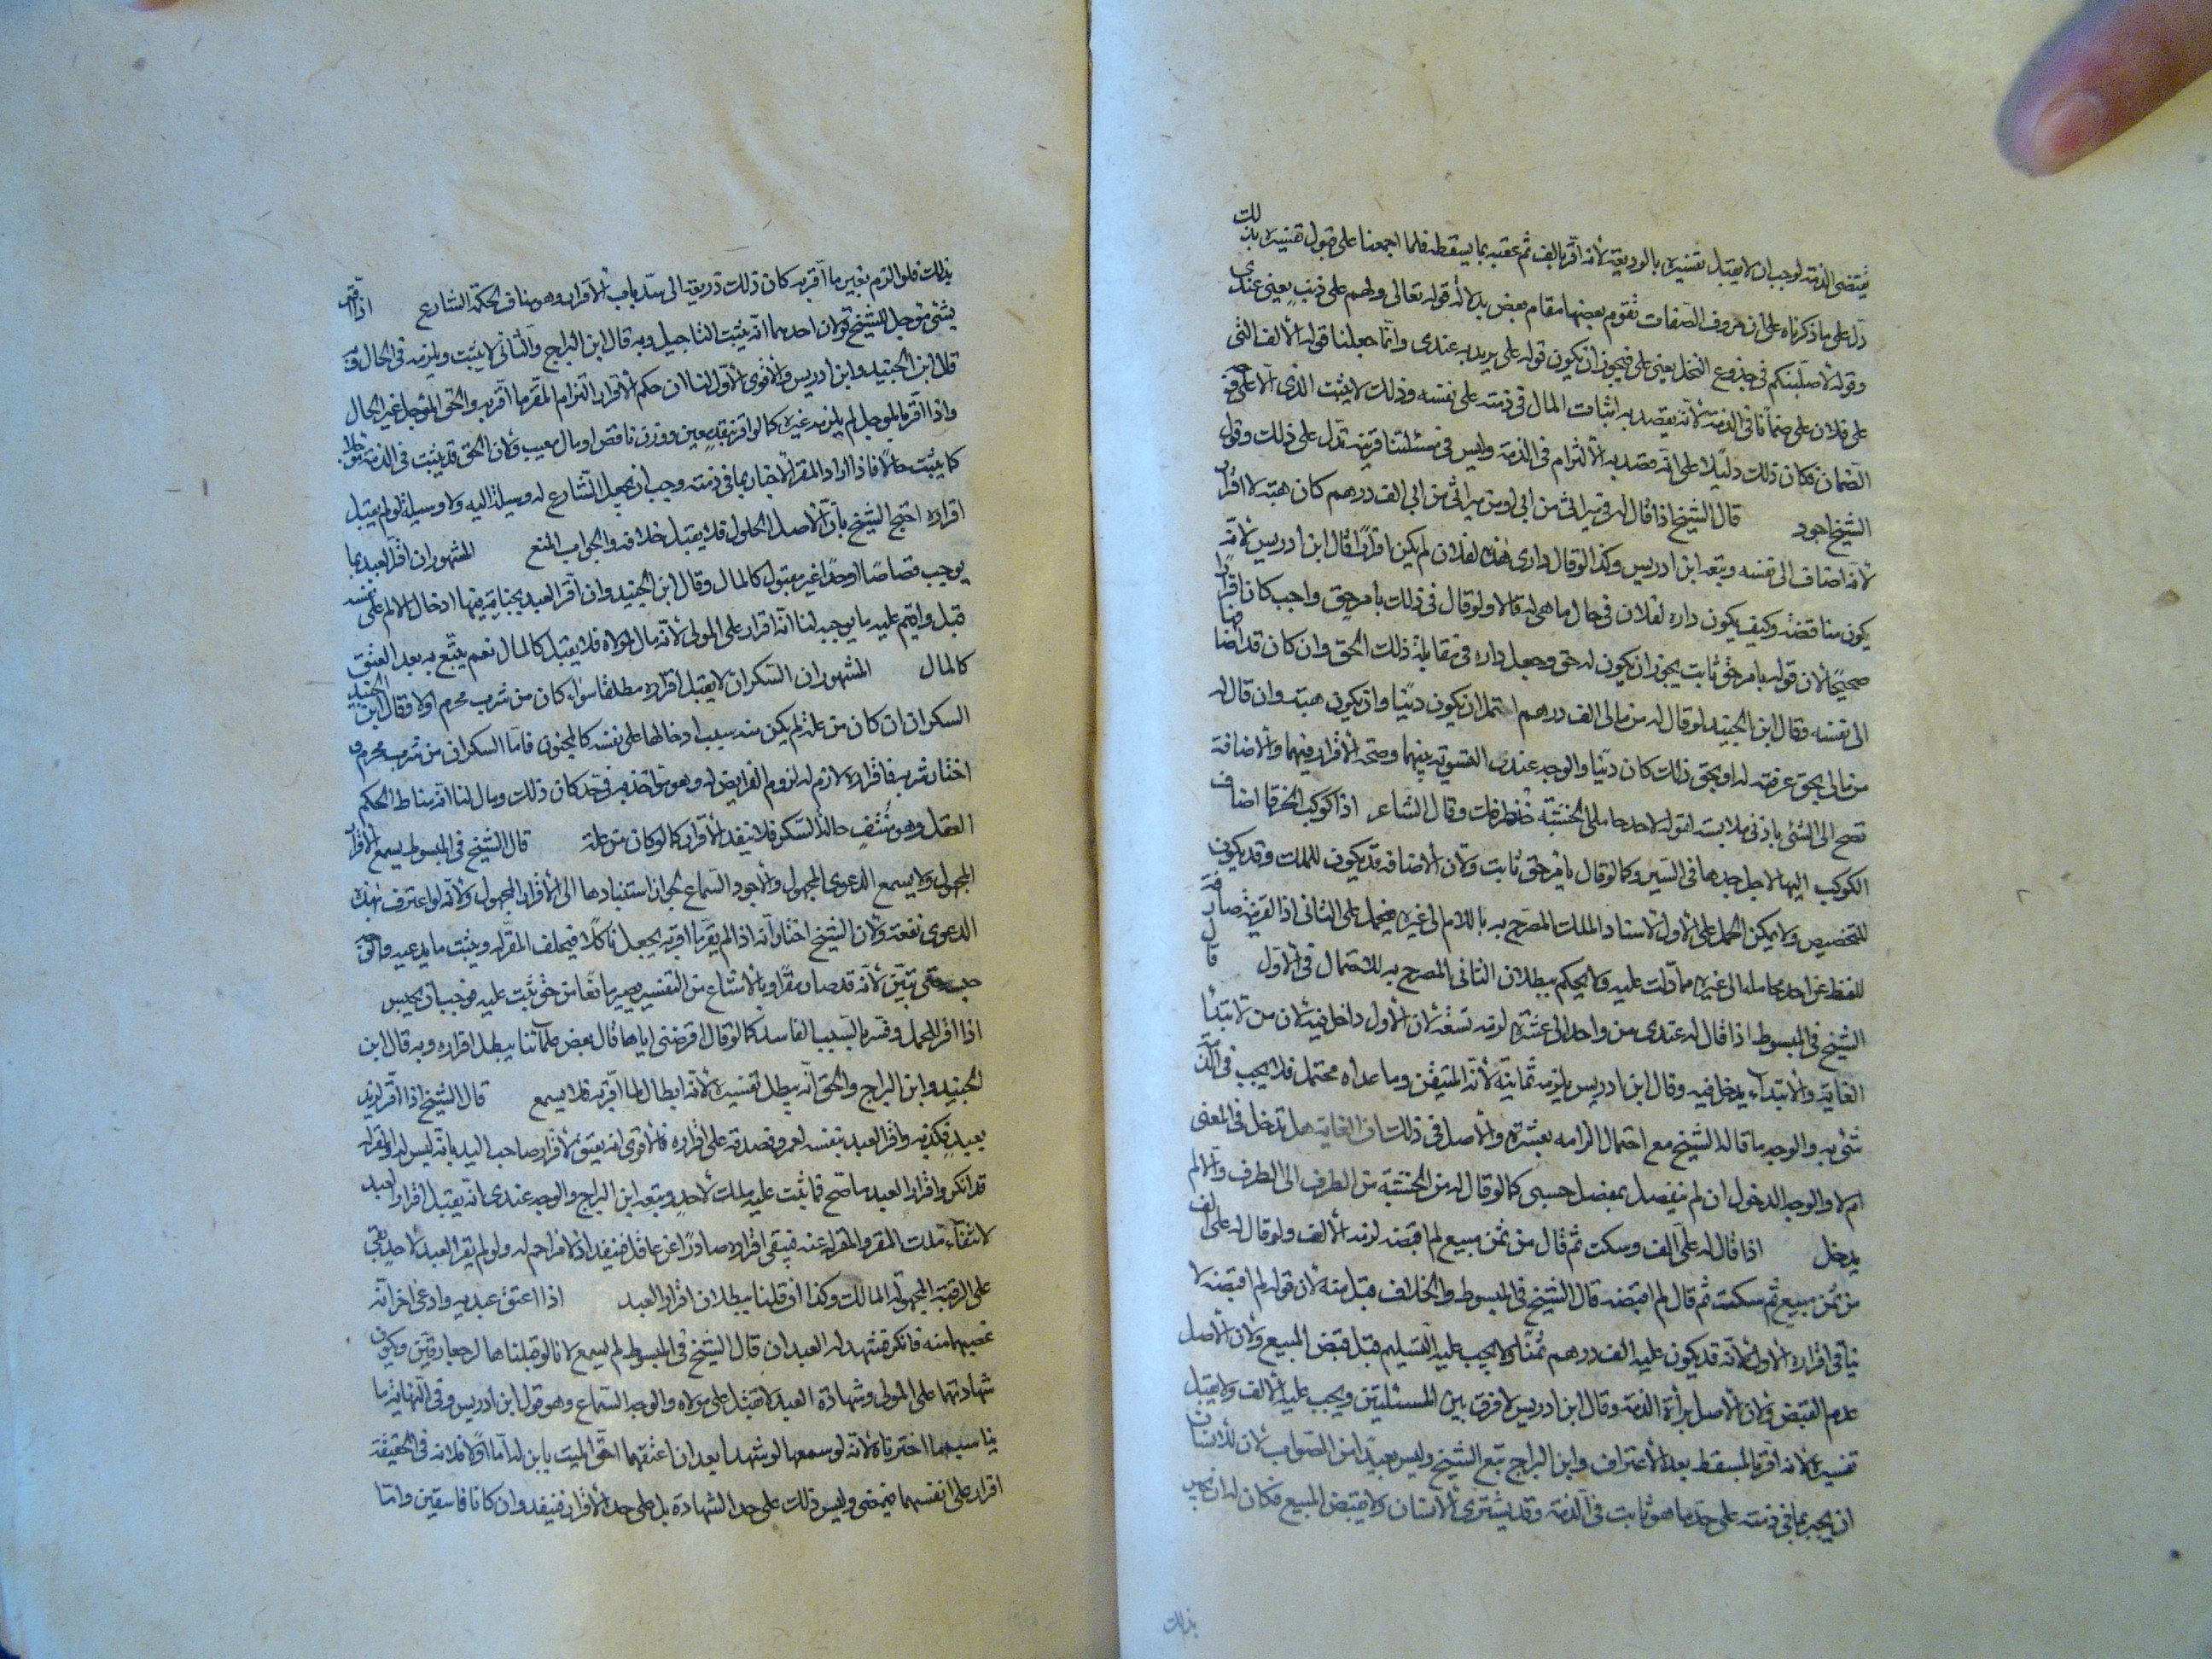 يقتضى الذمة لوجب ان لا يقبل تفسيره بالوديعة لانه اقر بالف ثم عقبه بما يسقطه فلما اجمعنا على قبول تفسيره بذلك
دل على ما ذكرناه على ان حروف الصفات تقوم بعضها مقام بعض بدلالة قوله تعالى ولهم على ذنب يعنى عندى
وقوله لاصلبنكم فى جذوع النخل يعنى على فيجوز ان يكون قوله على يريد به عندى وانما جعلنا قوله الالف التى
على فلان على ضمانا فى الذمة لانه يقصد به اثبات المال فى ذمته على نفسه وذلك لا يثبت الذى الا على جهة
الضمان فكان ذلك دليلا على انه قصد به الالتزام فى الذمة وليس فى مسئلتنا قرينة تدل على ذلك وقول
الشيخ اجود قال الشيخ اذا قال له فى ميراثى من ابى او من ميراثى من ابى الف درهم كان هبة لا اقرار
لانه اضاف الى نفسه وتبعه ابن ادريس وكذا لو قال دارى هذه لفلان لم يكن اقرارا قال ابن ادريس لانه
يكون مناقضة وكيف يكون داره لفلان فى حال ما هى له قالا ولو قال فى ذلك بامر حق واجب كان اقرارا
صحيحا لان قوله بامر حق ثابت يجوز ان يكون له حق وجعل داره فى مقابلة ذلك الحق وان كان قد اضافها
الى نفسه وقال ابن الجنيد لو قال له من مالى الف درهم احتمل ان يكون دينا وان يكون هبة وان قال له
من مالى بحق عرفته له او بحق ذلك كان دينا والوجه عندى التسوية بينهما وصحة الاقرار فيهما والاضافة
تصح الى الشئ بادنى ملابسة لقوله لاحد حاملى الخشبة خذ طرفك وقال الشاعر اذا كوكب الخرقا اضاف
الكوكب اليها لاجل جدها فى السير وكما لو قال بامر حق ثابت ولان الاضافة قد يكون للملك وقد يكون
للتخصيص ولا يمكن الحمل على الاول لاسناد الملك المصرح به باللام الى غيره فيحمل على الثانى اذ القرينة صارفة
للفظ عن احد محامله الى غيره مما دلت عليه ولا يحكم ببطلان الثانى المصرح به للاحتمال فى الاول قال
الشيخ فى المبسوط اذا قال له عندى من واحد الى عشرة لزمه تسعة لان الاول داخل فيه لان من لابتداء
الغاية والابتداء يدخل فيه وقال ابن ادريس يلزمه ثمانية لانه المتيقن وما عداه محتمل فلا يجب فى الذمة
شئ به والوجه ما قاله الشيخ مع احتمال الزامه بعشرة والاصل فى ذلك ان الغاية هل تدخل فى المغيى
ام لا والوجه الدخول ان لم ينفصل بمفصل حسى كما لو قال له من الخشبة من الطرف الى الطرف والا لم
يدخل اذا قال له على الف وسكت ثم قال من ثمن مبيع لم اقبضه لزمه الالف ولو قال له على الف
من ثمن مبيع ثم سكت ثم قال لم اقبضه قال الشيخ فى المبسوط والخلاف قبل منه لان قوله لم اقبضه لا
ينافى اقراره الاول لانه قد يكون عليه الف درهم ثمنا ولا يجب عليه التسليم قبل قبض المبيع ولان الاصل
عدم القبض ولان الاصل براءة الذمة وقال ابن ادريس لا فرق بين المسئلتين ويجب عليه الالف ولا يقبل
تفسيره لانه اقر بالمسقط بعد الاعتراف وابن البراج تبع الشيخ وليس بعيدا من الصواب لان للانسان
ان يخبر بما فى ذمته على حد ما هو ثابت فى الذمة وقد يشترى الانسان ولا يقبض المبيع فكان له ان يخبر
بذلك
بذلك فلو الزم بغير ما اقر به كان ذلك ذريعة الى سد باب الاقرار وهو مناف لحكمة الشارع اذا اقر
بشئ مؤجل للشيخ قولان احدهما انه يثبت التاجيل وبه قال ابن البراج والثانى لا يثبت ويلزمه فى الحال وبه
قال ابن الجنيد وابن ادريس والاقوى الاول لنا ان حكم الاقرار التزام المقر ما اقر به والحق المؤجل غير الحال
واذا اقر بالمؤجل لم يلزمه غيره كما لو اقر بنقد معين ووزن ناقص او مال معيب ولان الحق قد يثبت فى الذمة مؤجلا
كما يثبت حالا فاذا اراد المقر الاخبار بما فى ذمته وجب ان يجعل الشارع له وسيلة اليه ولا وسيلة لو لم يقبل
اقراره احتج الشيخ بان الاصل الحلول فلا يقبل خلافه والجواب المنع المشهور ان اقر العبد بما
يوجب قصاصا او حدا غير مقبول كالمال وقال ابن الجنيد وان اقر العبد بجناية فيها ادخال الالم على نفسه
قبل واقيم عليه ما يوجبه لنا انه اقرار على المولى لانه مال لمولاه فلا يقبل كالمال نعم يتبع به بعد العتق
كالمال المشهور ان السكران لا يقبل اقراره مطلقا سواء كان من شرب محرم او لا وقال ابن الجنيد
السكران ان كان من علة لم يكن منه سبب ادخالها على نفسه كالمجنون فاما السكران من شرب محرم و
اختار شربه فاقراره لازم له لزوم الفرايض له وهو مؤاخذ به فى حد كان ذلك ومال لنا انه مناط الحكم
العقل وهو منتف حالة السكر فلا ينفذ الاقرار كما لو كان من علة قال الشيخ فى المبسوط يسمع الاقرار
المجهول ولا يسمع الدعوى المجهول والاجود السماع لجواز استنادها الى الاقرار المجهول ولانه لو اعترف بهذه
الدعوى نفعته ولان الشيخ اختار انه اذا لم يقر بما اقر به يجعل ناكلا فيحلف المقر له ويثبت ما يدعيه والوجه
حبسه حتى يبين لانه قد صار مقرا وبالامتناع من التفسير يصير مانعا من حق ثبت عليه فوجب ان يحبس
اذا اقر للحمل وفسره بالسبب الفاسد كما لو قال اقرضنى اياها قال بعض علمائنا يبطل اقراره وبه قال ابن
الجنيد وابن البراج والحق انه يبطل تفسيره لانه ابطال لما اقر به فلا يسمع قال الشيخ اذا اقر لزيد
بعبد فكذبه واقر العبد بنفسه لعمرو فصدقه على اقراره فالاقوى انه يعتق لاقرار صاحب اليد بانه ليس له والمقر له
قد انكر واقرار العبد ما صح فما ثبت عليه ملك لاحد وتبعه ابن البراج والوجه عندى انه يقبل اقرار العبد
لانتفاء ملك المقر والمقر له عنه فيبقى اقراره صادرا عن عاقل فينفذ اذ لا مزاحم له ولو لم يقر العبد لاحد بقى
على الرقية المجهولة المالك وكذا ان قلنا ببطلان اقرار العبد اذا اعتق عبديه وادعى اخر انه
غصبهما منه فانكر فشهد له العبدان قال الشيخ فى المبسوط لم يسمع لانا لو قبلناها لرجعا رقين ويكون
شهادتهما على المولى وشهادة العبد لا تقبل على مولاه والوجه السماع وهو قول ابن ادريس وفى النهاية ما
يناسب ما اخترناه لانه لو سمعها لو شهدا بعد ان اعتقهما الحق الميت بابن له اما اولا فلانه فى الحقيقة
اقرار على انفسهما فيمضى وليس ذلك على حد الشهادة بل على حد الاقرار فينفذ وان كانا فاسقين واما